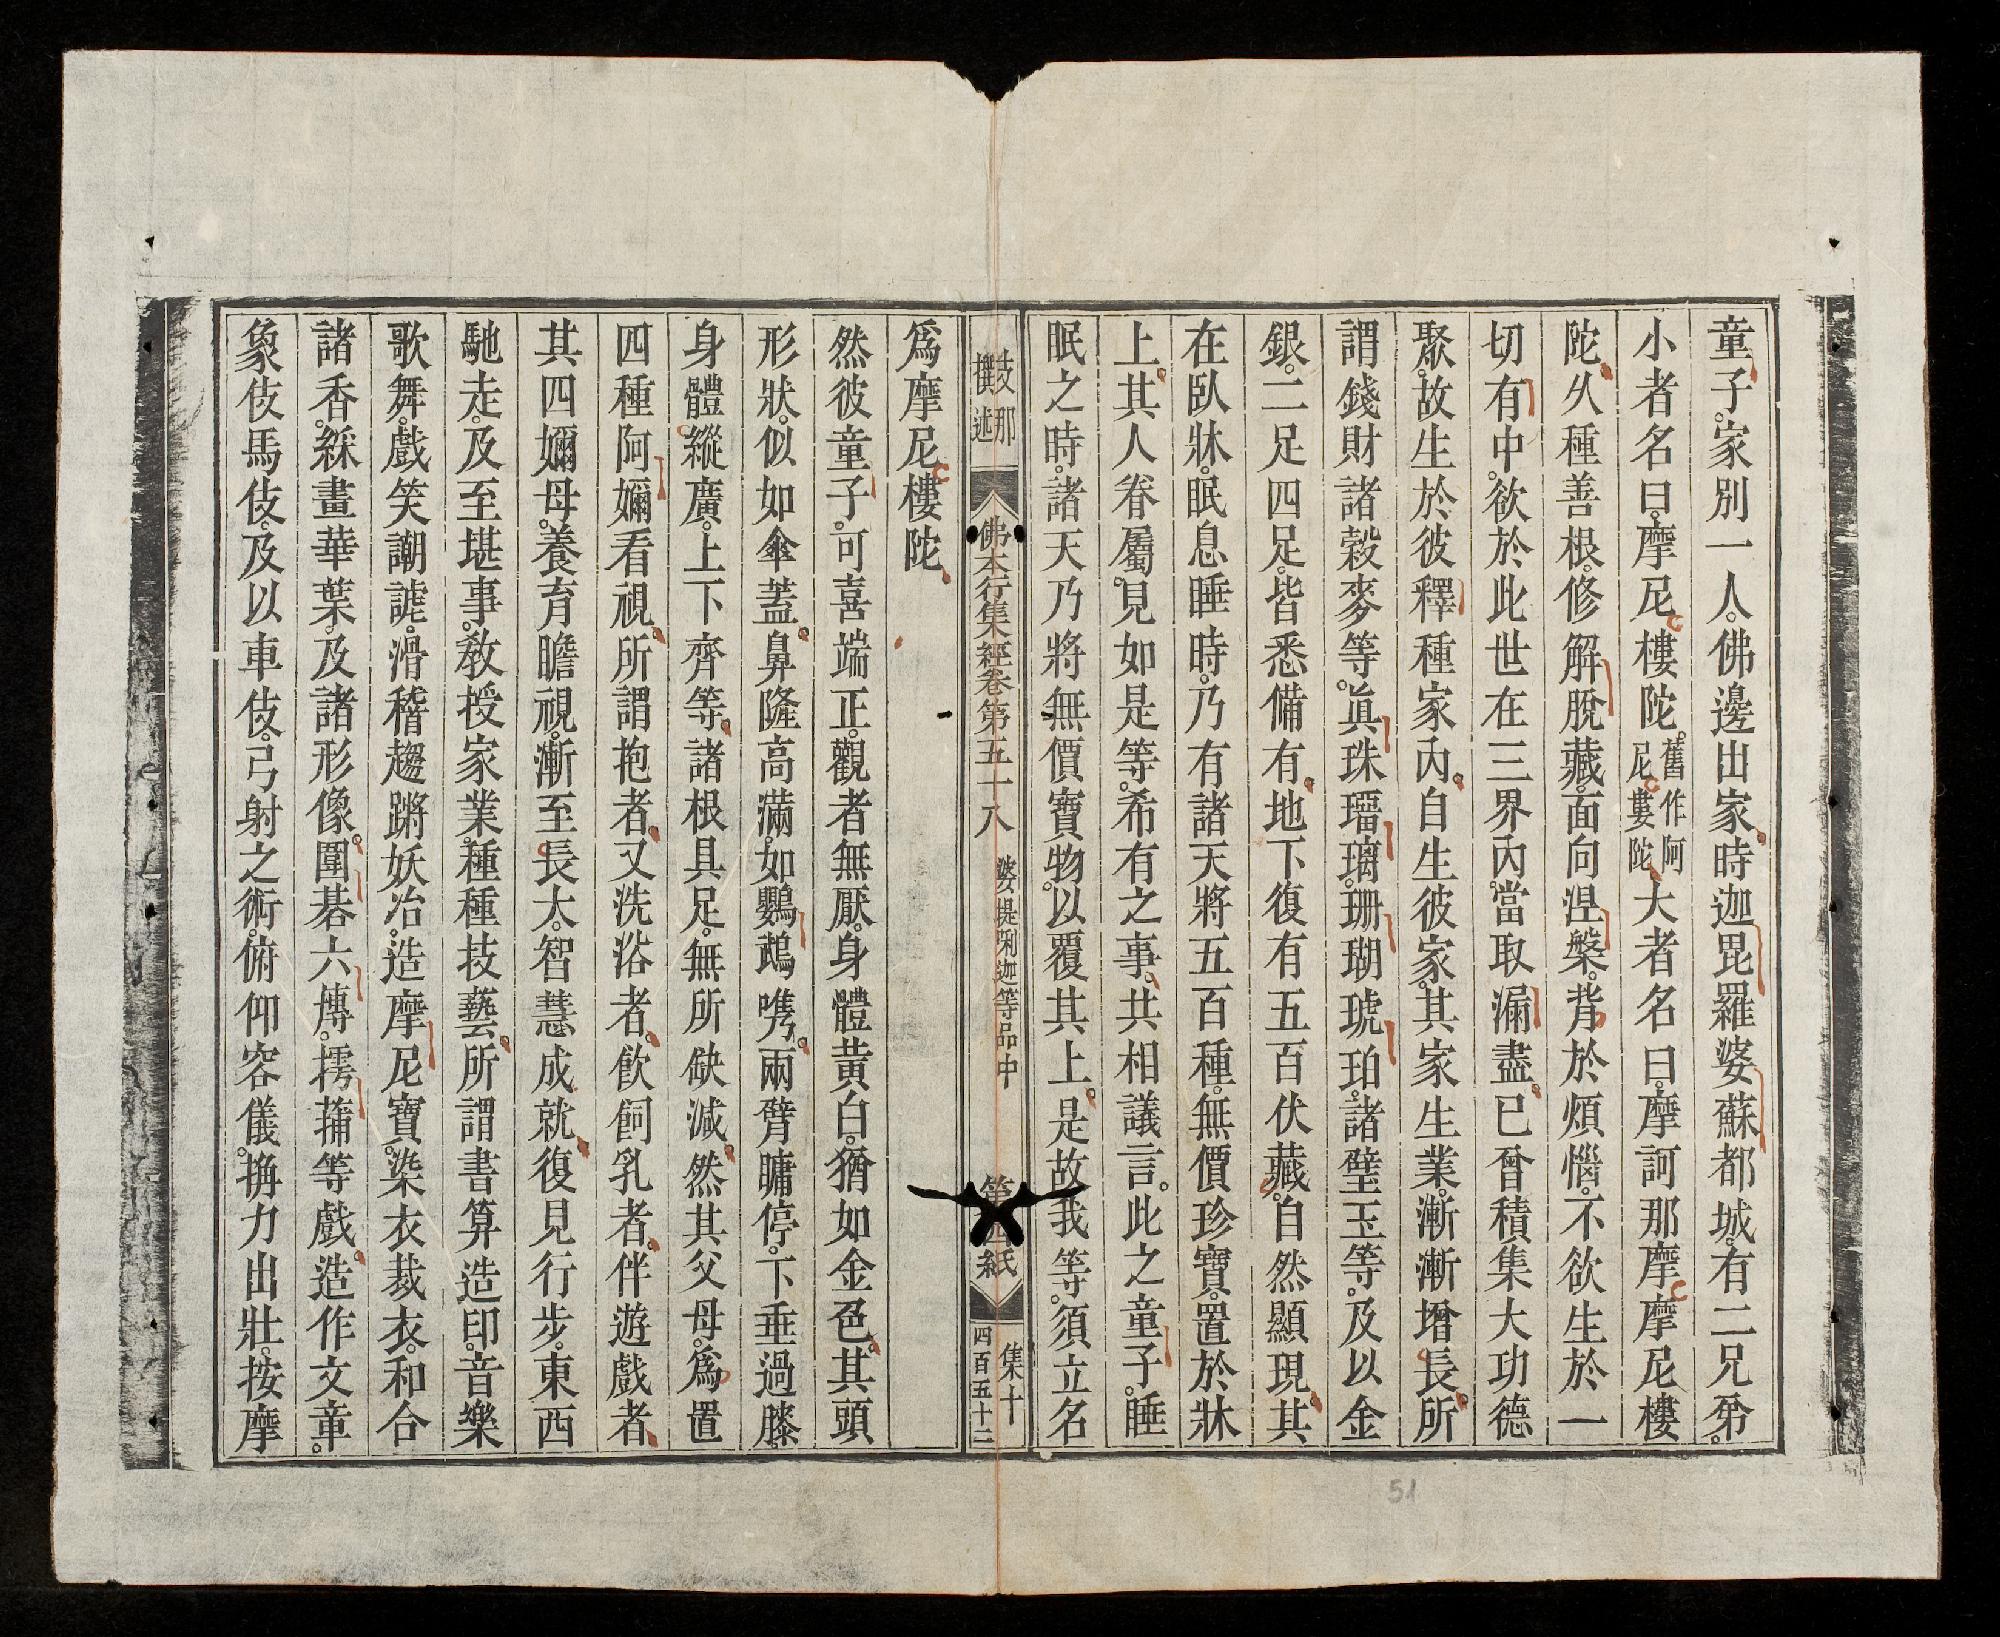 童子。家別一人。佛邊出家。時迦毘羅婆蘇都城。有二兄弟。
小者名曰。摩尼樓陀。舊作阿尼婁陀大者名曰。摩訶那摩摩尼樓
陀。久種善根。修解脫藏。面向涅槃。背於煩惱。不欲生於一
切有中。欲於此世在三界內。當取漏盡。已曾積集大功德
聚。故生於彼釋種家內。自生彼家。其家生業。漸漸增長。所
謂錢財諸穀麥等。真珠瑠璃。珊瑚琥珀。諸璧玉等。及以金
銀。二足四足。皆悉備有。地下復有五百伏藏。自然顯現。其
在臥牀。眠息睡時。乃有諸天將五百種。無價珍寶。置於牀
上。其人眷屬。見如是等。希有之事。共相議言。此之童子。睡
眠之時。諸天乃將無價寶物。以覆其上。是故我等。須立名
支那
撰述
佛本行集經卷第五十八
婆提唎迦等品中
第四紙
集十
四百五十二
爲摩尼樓陀。
然彼童子。可喜端正。觀者無厭。身體黃白。猶如金色。其頭
形狀。似如傘蓋。鼻隆高滿。如鸚鵡嘴。兩臂𦟛停。下垂過膝。
身體縱廣。上下齊等。諸根具足。無所缺減。然其父母。爲置
四種阿嬭看視。所謂抱者。又洗浴者。飲飼乳者。伴遊戲者。
其四嬭母。養育瞻視。漸至長大。智慧成就。復見行步。東西
馳走。及至堪事。敎授家業。種種技藝。所謂書算造印。音樂
歌舞。戲笑謿謔。滑稽趨蹡妖冶。造摩尼寶。染衣裁衣。和合
諸香。綵畫華葉。及諸形像。圍碁六博。摴蒱等戲。造作文章。
象伎馬伎。及以車伎。弓射之術。俯仰容儀。捔力出壯。按摩
51